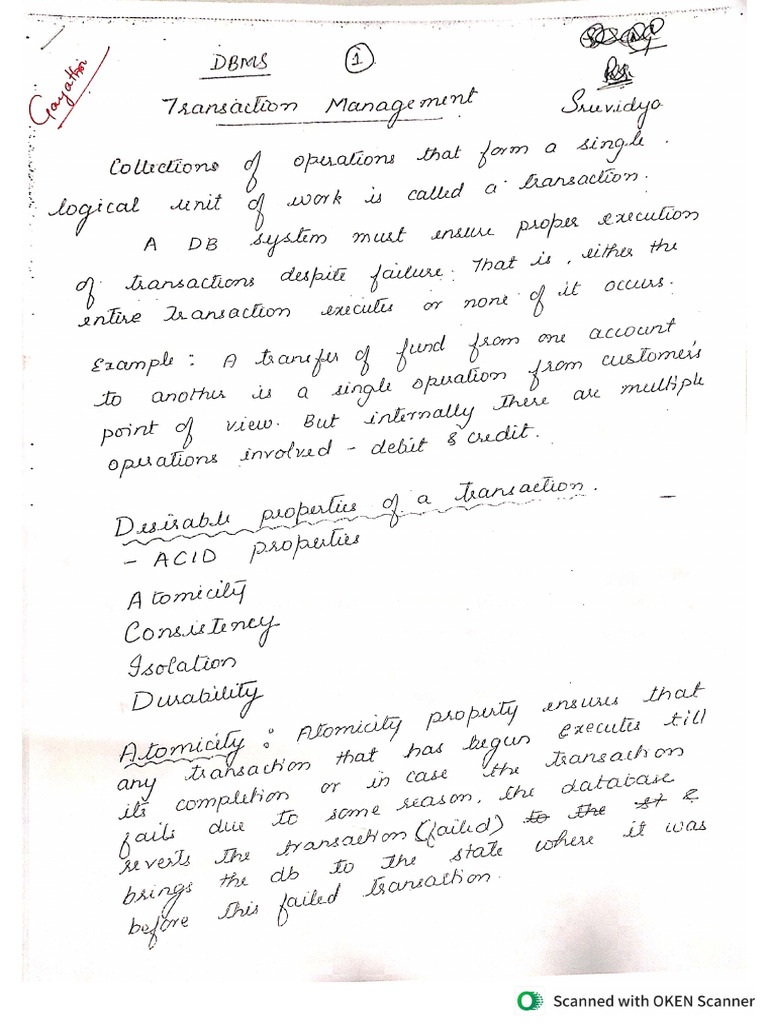 Gayathri
DBMS 1
Transaction Management Sruvidya
Collections of operations that form a single.
logical unit of work is called a transaction.
A DB system must ensure proper execution
of transactions despite failure. That is, either the
entire Transaction executes or none of it occurs.
Example: A transfer of fund from one account
to another is a single operation from customer's
point of view. But internally there are multiple
operations involved - debit & credit.
Desirable properties of a transaction.
- ACID properties
Atomicity
Consistency
Isolation
Durability
Atomicity: Atomicity property ensures that
any transaction that has begun executes till
its completion or in case the transaction
fails due to some reason, the database
reverts the transaction (failed) to the st &
brings the db to the state where it was
before this failed transaction.
Scanned with OKEN Scanner